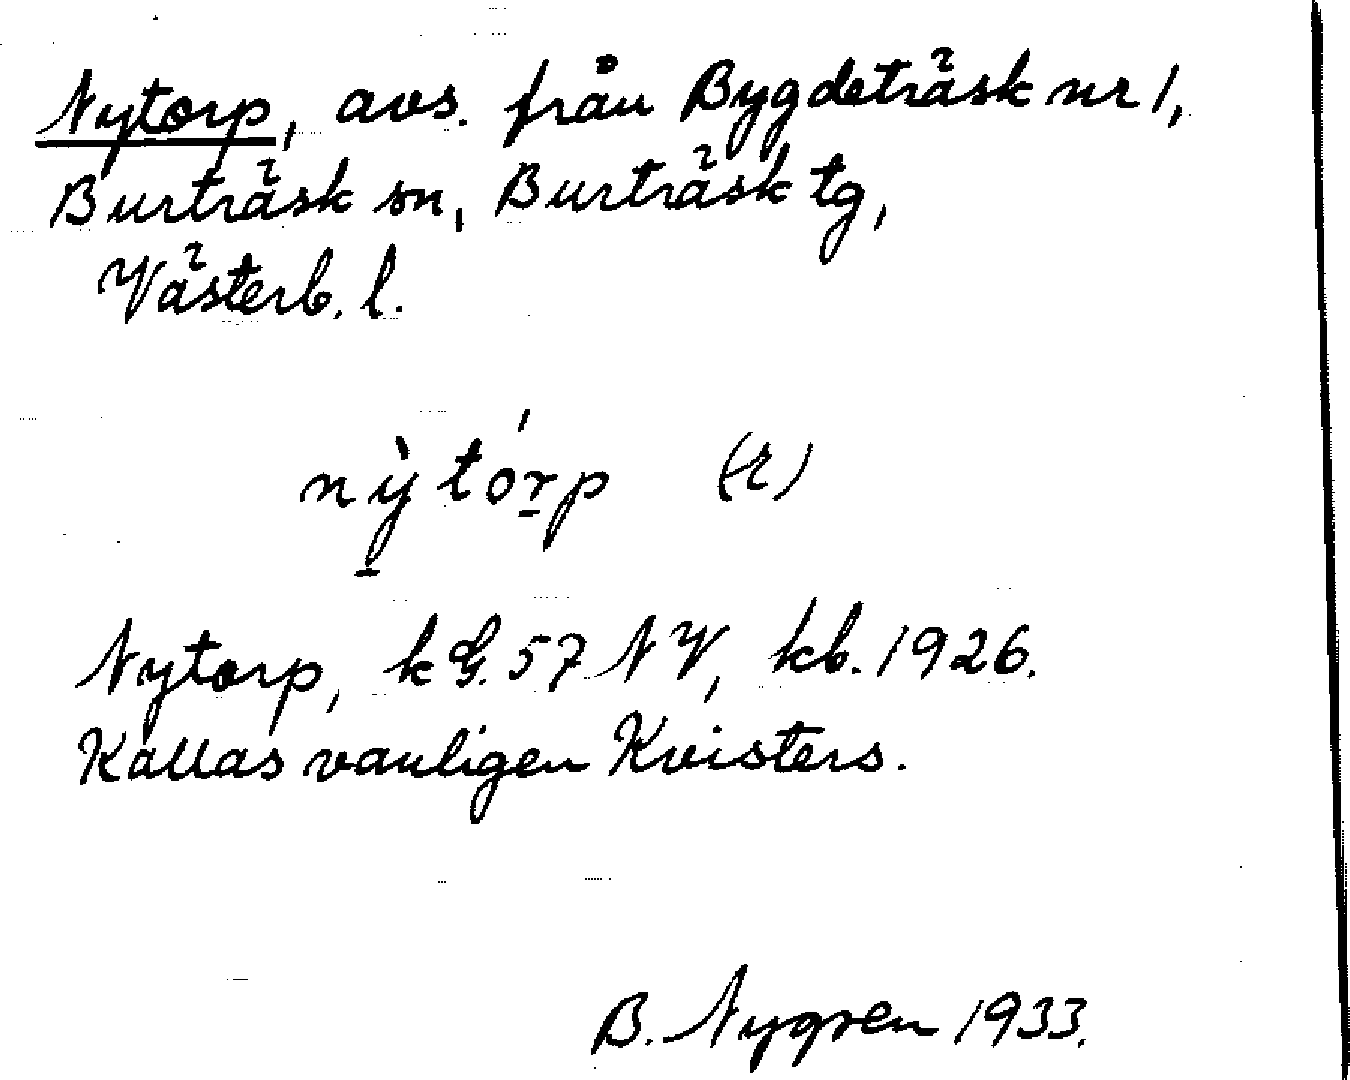 Nytorp, avs. från Bygdeträsk nr 1,
Burträsk sn, Burträsk tg,
Västerb. l.
nỳtórp (r)
Nytorp, k G. 57 NV, kb. 1926.
Kallas vanligen Kvisters.
B. Nygren 1933.